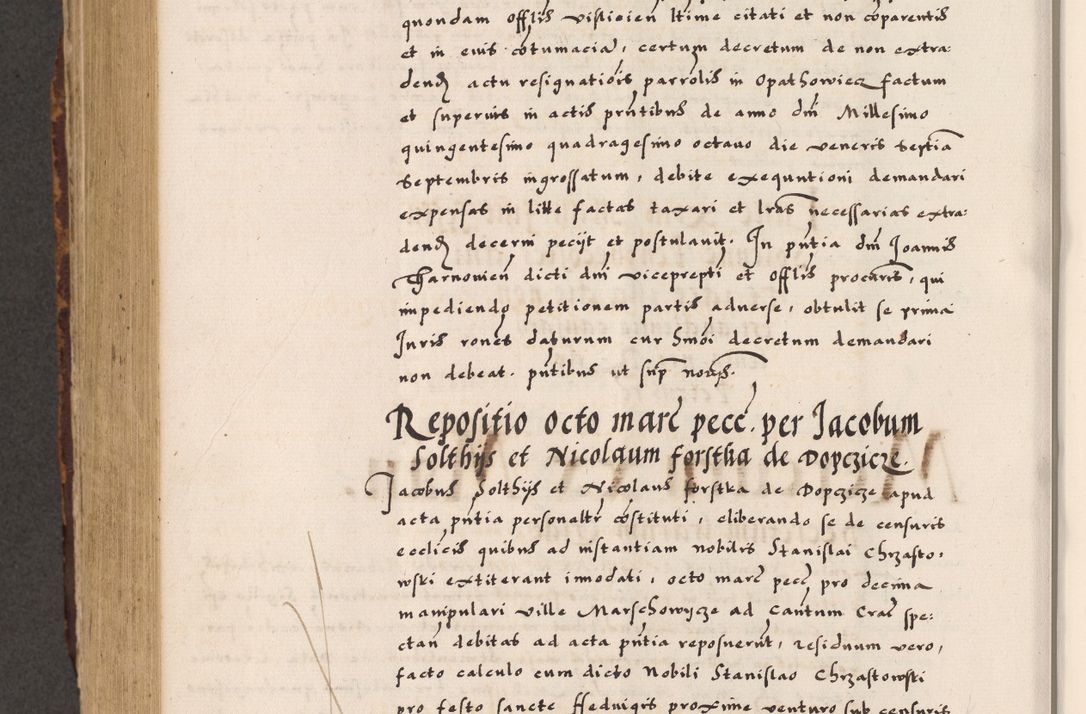 quondam offlis visticien ltime citati et non coparentis
et in euis cotumacia, certum decretum de non extra:
dend actu resignatiois parrolis in Opathowiecz factum
et superius in actis pntibus de anno dni Millesimo
quingentesimo quadragesimo octauo die veneris septia
septembris ingrossatum, debite exequutioni demandari
expensas in lite factas taxari et lras necessarias extra:
dend decerni pecijt et postulauit. In pntia dni Joannis
Tharnowien dicti dni viceprepti et offlis procuris, qui
impediendo petitionem partis aduerse, obtulit se prima
Juris rones daturum cur hmoi decretum demandari
non debeat. pntibus ut sup notas.
Repositio octo marc pecc. per Jacobum
Solthijs et Nicolaum forstka de Dopczicze.
Jacobus Solthijs et Nicolaus forstka de Dopczicze apud
acta pntia personalr costituti, eliberando se de censuris
ecclicis quibus ad instantiam nobilis Stanislai Chrzasto,
wski extiterant innodati, octo marc pecc pro decima
manipulari ville Marschowycze ad Cantum Crac spe:
ctan debitas ad acta pntia reposuerut, residuum vero,
facto calculo cum dicto Nobili Stanislao Chrzastowski
pro festo sancte Heduigis proxime venturo sub censuris